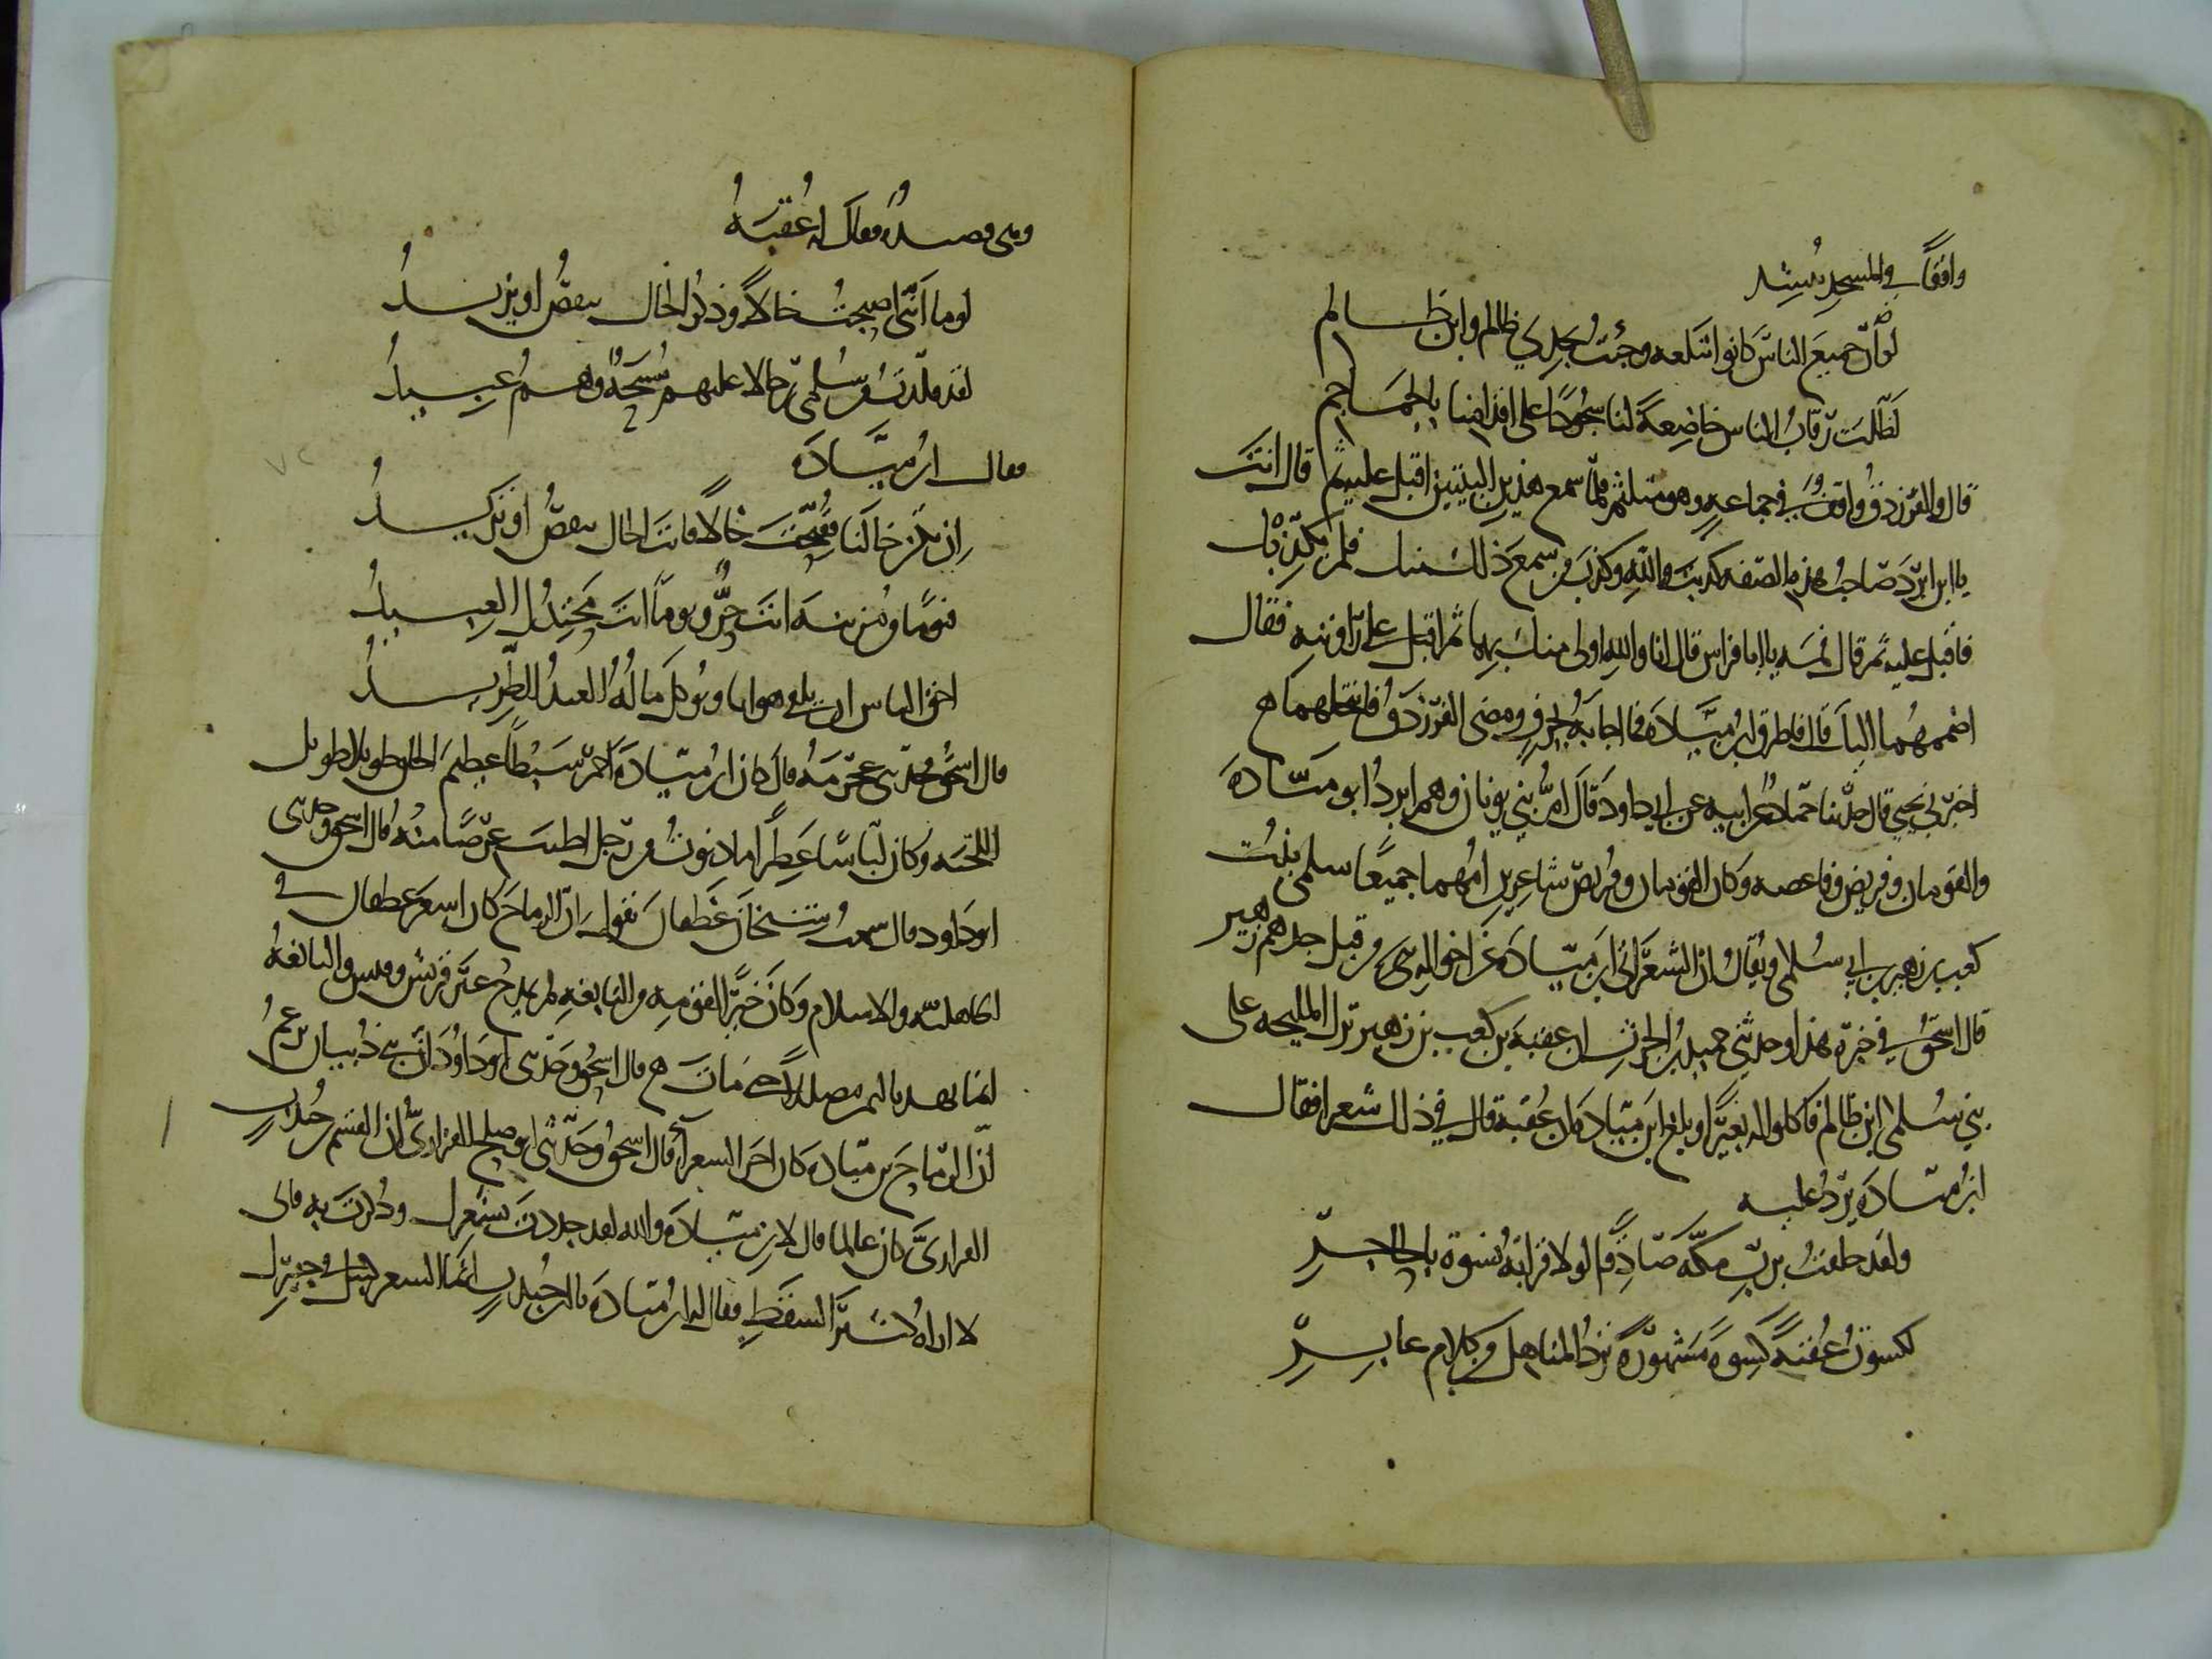 واقفاً في المسجد ينشد
لو أنّ جميع الناس كانوا بتلعة وجئت بجدي ظالم وابن ظالم
لظلّت رقاب الناس خاضعة لنا سجودًا على اقدامنا بالجماجم
قال والفرزدق واقف في جماعة وهو متلثم فلما سمع هذين البيتين اقبل عليه ثم قال انت
يا ابن ابرد صاحب هذه الصفه كذبت والله وكذب من سمع ذلك منك فلم يكذبك
فاقبل عليه ثم قال فمه يا ابا فراس قال انا والله اولى منك بهما ثم اقبل على راويته فقال
اضممهما اليك قال فاطرق ابن ميّادة فما اجابه بحرف ومضى الفرزدق فانتحلهما ح
اخبرني يحيى قال حدثنا حمّاد عن ابيه عن ابي داود قال امّ بني ثوبان وهم ابرد ابو ميّادة
والعوثبان وقريض وناعصه وكان العوثبان وقريض شاعرين امهما جميعًا سلمى بنت
كعب بن زهير بن ابي سلمى ويقال ان الشعر اتى ابن ميّادة عن اخواله من قبل جدهم زهير
قال اسحق في خبره هذا وحدثني حميد بن الحرث ان عقبة بن كعب بن زهير نزل المليحه على
بني سلمى ابن ظالم فاكلوا له بعيرًا وبلغ ابن ميّادة ان عقبة قال في ذلك شعرا فقال
ابن ميّادة يردّ عليه
ولقد حلفت بربّ مكّة صادقًا لولا قرابة نسوة بالحاجر
لكسوت عقبة كسوة مشهورة ترد المناهل من كلام عابر
وهي قصيدة فقال له عقبة
لوما انّني اصبحت خالاً وذكر الخال ينقص او يزيد
لقد قلّدت من سلمى رجالا عليهم مسحة وهم عبيد
فقال ابن ميّادة
ان تكن خالنا فقبحت خالًا فانت الخال تنقص او تزيد
فيومًا في مزينة انت حرّ ويومًا انت محتدك العبيد
احق الناس ان يلقى هوانا ويوكل ماله العبد الطريد
قال اسحق فحدثني عجرمة قال كان ابن ميّادة احمر سبطاً عظيم الخلق طويلا طويل
اللحيه وكان لبّاسًا عطرًا ما دنوت من رجل اطيب عرضًا منه قال اسحق وحدثني
ابو داود قال سمعت شيخا من غطفان يقول ان الرماح كان اشعر غطفان في
الجاهليّة والاسلام وكان خيرًا لقومه من النابغه لم يمدح غير قريش وقيس والنابغة
انما يهذي باليمن مضللاً حتى مات ح قال اسحق وحدثني ابو داود انّ بني ذبيان تزعم
انّ الرمّاح بن ميّادة كان اخر الشعراء قال اسحق وحدّثني ابو صالح الفزاريّ ان القسم بن جندب
الفزاريّ كان عالما قال لابن ميّادة والله لقد جددت بشعرك وذكرت به واني
لاراه كثير السقط فقال له ابن ميّادة يا ابن جندب انما الشعر كنبل في جفيرك